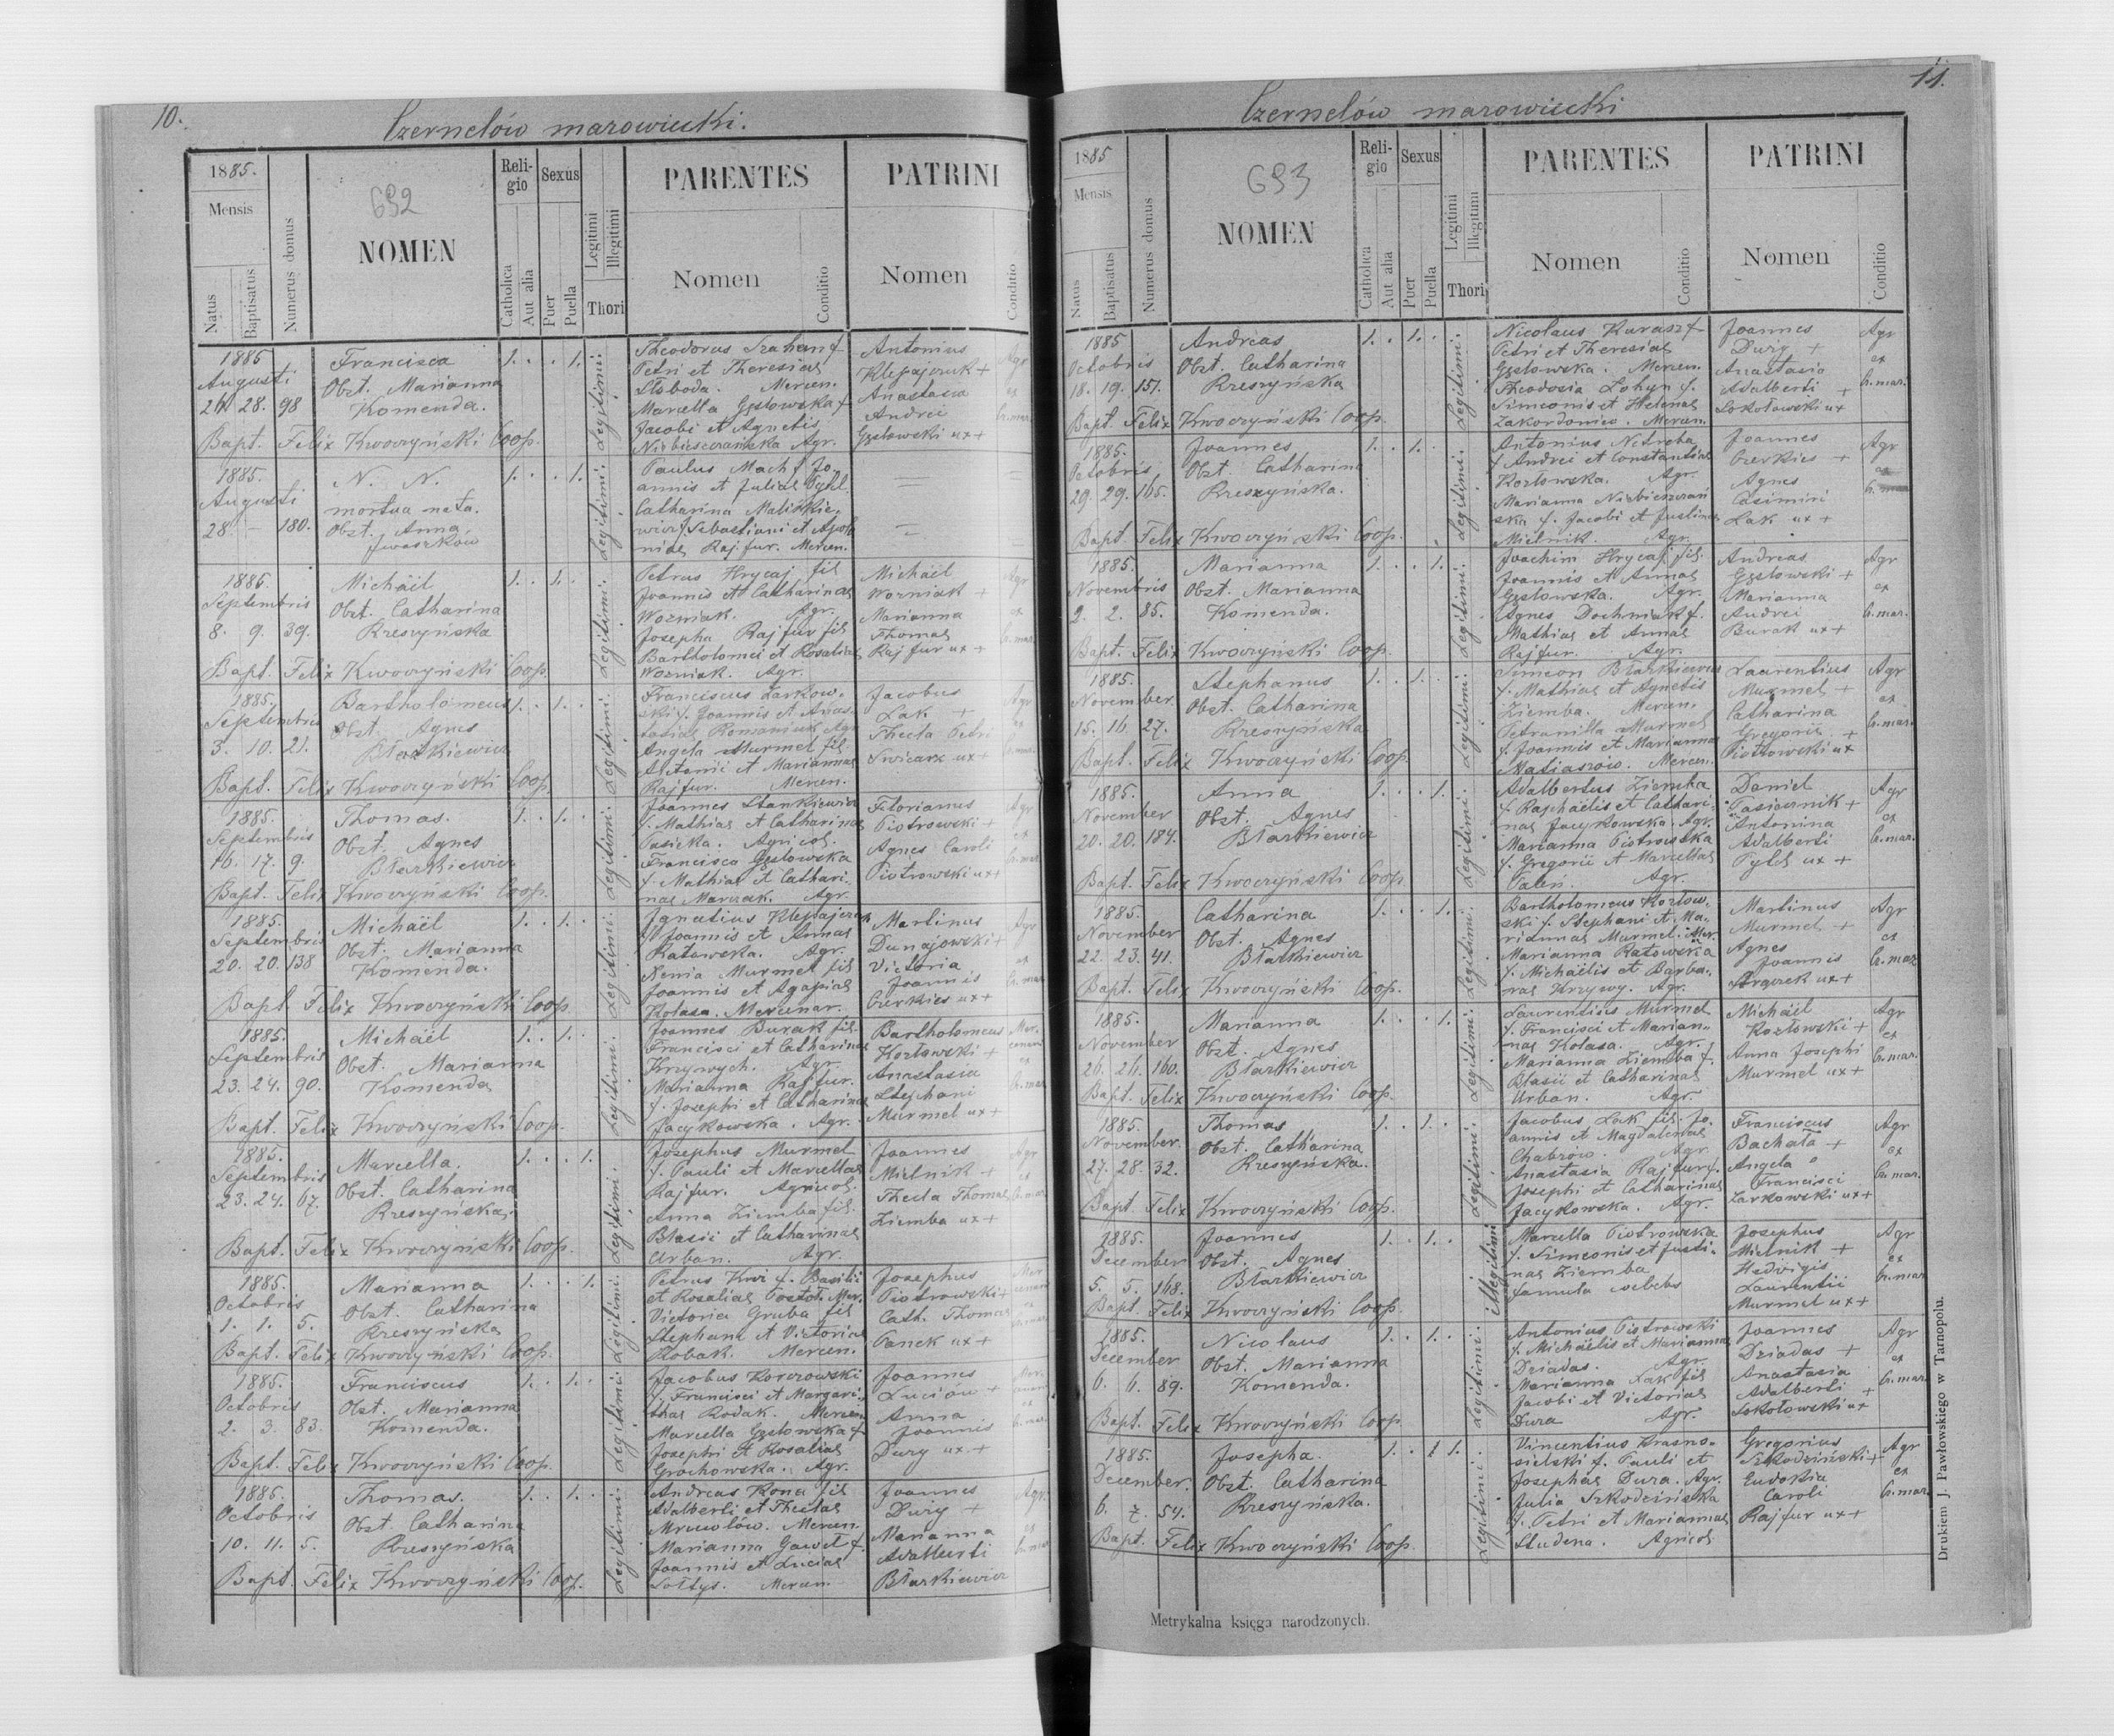 10.
Czernelów mazowiecki.
1885.
Mensis
Natus
Baptisatus
Numerus domus
692
NOMEN
Religio
Catholica
Aut alia
Sexus
Puer
Puella
Legitimi
Illegitimi
Thori
PARENTES
Nomen
Conditio
PATRINI
Nomen
Conditio
1885
Augusti
28. 98
Francisca
Obst. Marianna
Komenda.
1. . . 1.
Legitimi:
Petri et Theresiae
Sloboda. Mercen.
Marcella Gęslowska f.
Jacobi et Agnetis
Agr.
Antonius
Klepajczuk +
Anastasia
Andrei
Gęslowski ux +
Bapt. Felix Kwoczyński Coop.
1885.
Augusti
28. – 180.
N. N.
mortua nata.
Obst. Anna
Iwaszkow
1. . . 1.
Legitimi:
Paulus Mach f. Jo-
annis et Juliae
Catharina
Sebastiani et Apolo
niae Rajfur. Mercen.
1885.
Septembris
8. 9. 39.
Michaël
Obst. Catharina
Kreszyńska
1. . 1. .
Legitimi:
Petrus Hrycaj fil
Joannis et Catharinae
Wozniak. Agr.
Josepha Rajfur fil
Bartholomei et Rosaliae
Wozniak. Agr.
Michaël
Wozniak +
Marianna
Thomae
Rajfur ux +
Bapt. Felix Kwoczyński Coop.
1885.
Septembris
3. 10. 21.
Bartholomeus
Obst. Agnes
Błaszkiewicz
1. . 1. .
Legitimi:
Franciscus Żarkow-
ski f. Joannis et Anas-
tasiae Romaniuk Agr.
Angela Murmel fil
Antonii et Mariannae
Rajfur. Mercen.
Jacobus
Lak +
Thecla Petri
ux +
Bapt. Felix Kwoczyński Coop.
1885.
Septembris
16. 17. 9.
Thomas.
Obst. Agnes
Błaszkiewicz
1. . 1. .
Legitimi:
Joannes Stankiewicz
f. Mathiae et Catharinae
Pasieka. Agricol.
Francisca Gęslowska
f. Mathiae et Cathari-
nae Marczak. Agr.
Florianus
Piotrowski +
Agnes Caroli
Piotrowski ux +
Bapt. Felix Kwoczyński Coop.
1885.
Septembris
20. 20. 138
Michaël
Obst. Marianna
Komenda.
1. . 1. .
Legitimi:
Ignatius Klepajczuk
f. Joannis et Annae
Ratowska. Agr.
Xenia Murmel fil
Joannis et Agapiae
Kolasa. Mercenar.
Martinus
Dunajowski +
Victoria
Joannis
Czerkies ux +
Bapt. Felix Kwoczyński Coop.
1885.
Septembris
23. 24. 90.
Michaël
Obst. Marianna
Komenda
1. . 1. .
Legitimi:
Joannes Burak fil.
Francisci et Catharinae
Krzywych. Agr.
Marianna Rajfur.
f. Josephi et Catharinae
Jacykowska. Agr.
Bartholomeus
Kozłowski +
Anastasia
Stephani
Murmel ux +
Bapt. Felix Kwoczyński Coop.
1885.
Septembris
23. 24. 67.
Marcella.
Obst. Catharina
Kreszyńska.
1. . . 1.
Legitimi:
Josephus Murmel
f. Pauli et Marcellae
Rajfur. Agricol.
Anna Ziemba fil.
Blasii et Catharinae
Urban. Agr.
Joannes
Mielnik +
Thecla Thomae
Ziemba ux +
Bapt. Felix Kwoczyński Coop.
1885.
Octobris
1. 1. 5.
Marianna
Obst. Catharina
Kreszyńska
1. . . 1.
Legitimi:
Petrus f. Basilii
et Rosaliae Mer.
Victoria Gruba fil
Stephani et Victoriae
Robak. Mercen.
Josephus
Piotrowski +
Cath. Thomae
Panek ux +
Bapt. Felix Kwoczyński Coop.
1885.
Octobris
2. 3. 83.
Franciscus
Obst. Marianna
Komenda.
1. . 1. .
Legitimi:
Jacobus Korczowski
f. Francisci et Margari-
thae Rodak. Mercen
Marcella Gęslowska f.
Josephi et Rosaliae
Grochowska. Agr.
Joannes
Luciow +
Anna
Joannis
Dury ux. +
Bapt. Felix Kwoczyński Coop.
1885.
Octobris
10. 11. 5.
Thomas.
Obst. Catharina
Kreszyńska
1. . 1. .
Legitimi:
Andreas Kona fil
Adalberti et Theclae
Mercen.
Marianna Gawel f.
Joannis et Luciae
Soltys. Mercen
Joannes
Dury +
Marianna
Adalberti
Błaszkiewicz
Bapt. Felix Kwoczyński Coop.
11.
Czernelów mazowiecki
1885
Mensis
Natus
Baptisatus
Numerus domus
693
NOMEN
Religio
Catholica
Aut alia
Sexus
Puer
Puella
Legitimi
Illegitimi
Thori
PARENTES
Nomen
Conditio
PATRINI
Nomen
Conditio
1885
Octobris
18. 19. 157.
Andreas
Obst. Catharina
Kreszyńska
1. . 1. .
Legitimi:
Nicolaus Kurasz f.
Petri et Theresiae
Gęslowska. Mercen.
Theodosia Lohyn f.
Simeonis et Helenae
Zakordoniec. Mercen.
Joannes
Dury +
Anastasia
Adalberti +
Sokołowski ux
Agr
et
h. mar.
Bapt. Felix Kwoczyński Coop.
1885.
Octobris
29. 29. 165.
Joannes
Obst. Catharina
Kreszyńska.
1. . 1. .
Legitimi:
Antonius Netreba
f. Andrei et Constantiae
Kozłowska. Agr.
Marianna
ska f. Jacobi et Justinae
Mielnik. Agr.
Joannes
Czerkies +
Agnes
Casimiri
Lak ux +
Agr
et
Bapt. Felix Kwoczyński Coop.
1885.
Novembris
2. 2. 85.
Marianna
Obst. Marianna
Komenda.
1. . . 1.
Legitimi:
Joachim Hrycaj fil.
Joannis et Annae
Gęslowska. Agr.
Agnes Dochniak f.
Mathiae et Annae
Rajfur. Agr.
Andreas
Gęslowski +
Marianna
Andrei
Burak ux +
Agr
et
h. mar.
Bapt. Felix Kwoczyński Coop.
1885.
November
15. 16. 27.
Stephanus
Obst. Catharina
Kreszyńska
1. . 1. .
Legitimi:
Simeon Błaszkiewicz
f. Mathiae et Agnetis
Ziemba. Mercen.
Petronilla Murmel
f. Joannis et Mariannae
Matiaszow. Mercen.
Laurentius
Murmel +
Catharina
Gregorii +
Piotrowski ux
Agr
et
h. mar.
Bapt. Felix Kwoczyński Coop.
1885.
November
20. 20. 184.
Anna
Obst. Agnes
Błaszkiewicz
1. . . 1.
Legitimi:
Adalbertus Ziemba
f. Raphaëlis et Cathari-
nae Jacykowska. Agr.
Marianna Piotrowska
f. Gregorii et Marcellae
Paleń. Agr.
Daniel
Pasicznik +
Antonina
Adalberti
Pytel ux +
Agr
et
h. mar.
Bapt. Felix Kwoczyński Coop.
1885.
November
22. 23. 41.
Catharina
Obst. Agnes
Błaszkiewicz
1. . . 1.
Legitimi:
Bartholomeus Kozłow-
ski f. Stephani et Ma-
riannae Murmel. Mer.
Marianna Ratowska
f. Michaëlis et Barba-
rae Krzywy. Agr.
Martinus
Murmel +
Agnes
Joannis
ux +
Agr
et
h. mar
Bapt. Felix Kwoczyński Coop.
1885.
November
26. 26. 160.
Marianna
Obst. Agnes
Błaszkiewicz
1. . . 1.
Legitimi:
Laurentius Murmel
f. Francisci et Marian-
nae Kolasa. Agr.
Marianna Ziemba f.
Blasii et Catharinae
Urban. Agr.
Michaël
Kozłowski +
Anna Josephi
Murmel ux +
Agr
et
h. mar.
Bapt. Felix Kwoczyński Coop.
1885.
November.
27. 28. 32.
Thomas
Obst. Catharina
Kreszyńska.
1. . 1. .
Legitimi:
Jacobus Lak fil. Jo-
annis et Magdalenae
Chabrow. Agr.
Anastasia Rajfur f.
Josephi et Catharinae
Jacykowska. Agr.
Franciscus
Bachata +
Angela
Francisci
Żarkowski ux +
Agr
et
h. mar.
Bapt. Felix Kwoczyński Coop.
1885.
December
5. 5. 168.
Joannes
Obst. Agnes
Błaszkiewicz
1. . 1. .
illegitimi
Marcella Piotrowska
f. Simeonis et Justi-
nae Ziemba
famula coelebs
Josephus
Mielnik +
Hedwigis
Laurentii
Murmel ux +
Agr
et
h. mar
Bapt. Felix Kwoczyński Coop.
1885.
December
6. 6. 89.
Nicolaus
Obst. Marianna
Komenda.
1. . 1. .
Legitimi:
Antonius Piotrowski
f. Michaëlis et Mariannae
Dziadas. Agr.
Marianna Lak fil
Jacobi et Victoriae
Dura Agr.
Joannes
Dziadas +
Anastasia
Adalberti +
Sokołowski ux
Agr
et
h. mar.
Bapt. Felix Kwoczyński Coop
1885.
December.
6. 7. 54.
Josepha.
Obst. Catharina
Kreszyńska.
Legitimi.
Vincentius Krasno-
sielski f. Pauli et
Josephae Dura. Agr.
Julia Szkodzińska
f. Petri et Mariannae
Studena. Agricol
Gregorius
Szkodziński +
Eudokia
Caroli
Rajfur ux +
Agr
et
h. mar
Bapt. Felix Kwoczyński Coop.
Metrykalna księga narodzonych.
Drukiem J. Pawłowskiego w Tarnopolu.